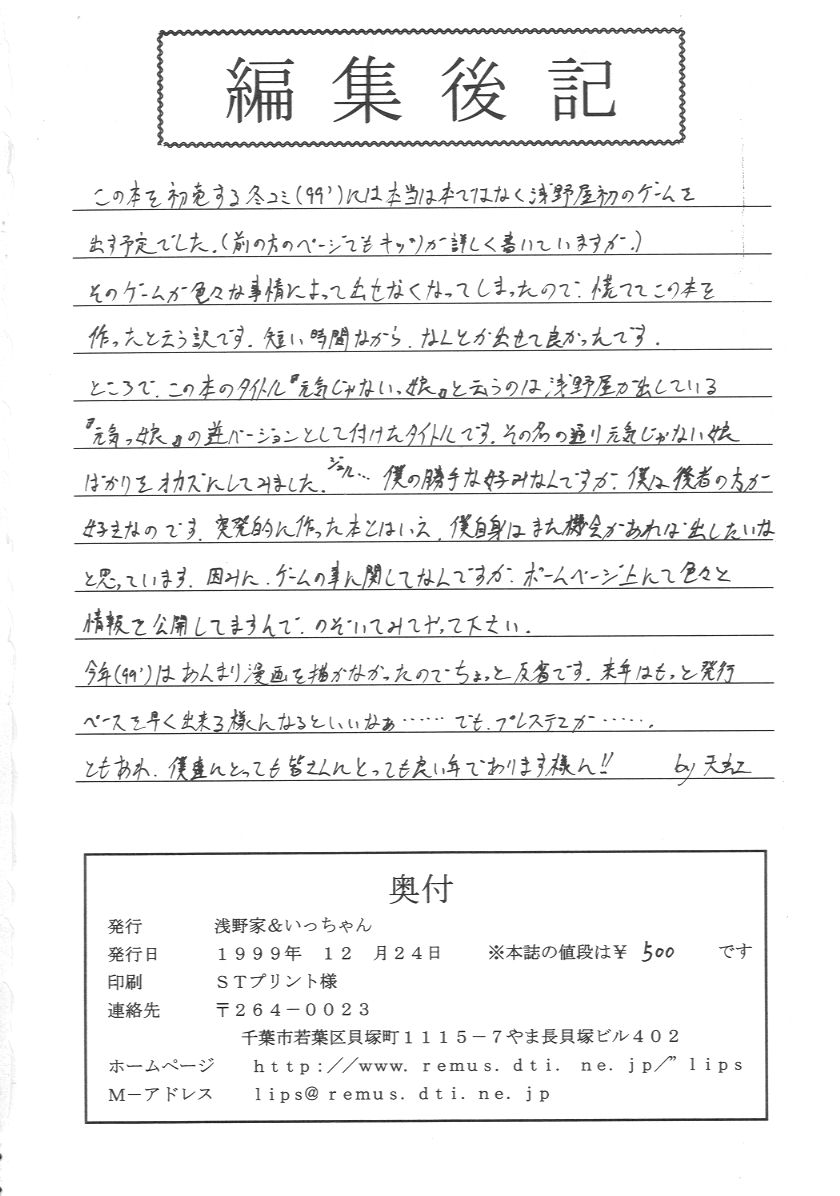 編集後記
この本を初売する冬コミ(99')には本当は本ではなく浅野屋初のゲームを
出す予定でした。(前の方のページでもキッツが詳しく書いていますが。)
そのゲームが色々な事情によって出せなくなってしまったので、慌ててこの本を
作ったと云う訳です。短い時間ながら、なんとか出せて良かったです。
ところで、この本のタイトル『元気じゃないっ娘』と云うのは浅野屋が出している
『元気っ娘』の逆バージョンとして付けたタイトルです。その名の通り元気じゃない娘
ばかりをオカズにしてみました。ジュル… 僕の勝手な好みなんですが、僕は後者の方が
好きなのです。突発的に作った本とはいえ、僕自身はまた機会があれば出したいな
と思っています。因みに、ゲームの事に関してなんですが、ホームページ上にて色々と
情報を公開してますんで、のぞいてみてやって下さい。
今年(99')はあんまり漫画を描かなかったのでちょっと反省です。来年はもっと発行
ペースを早く出来る様になるといいなぁ……でも、プレステ2が……。
ともあれ、僕達にとっても皆さんにとっても良い年であります様に!! by 天虹
奥付
発行 浅野家&いっちゃん
発行日 1999年 12月24日 ※本誌の値段は¥ 500 です
印刷 STプリント様
連絡先 〒264−0023
千葉市若葉区貝塚町1115−7やま長貝塚ビル402
ホームページ http://www.remus.dti.ne.jp/”lips
M−アドレス lips@remus.dti.ne.jp